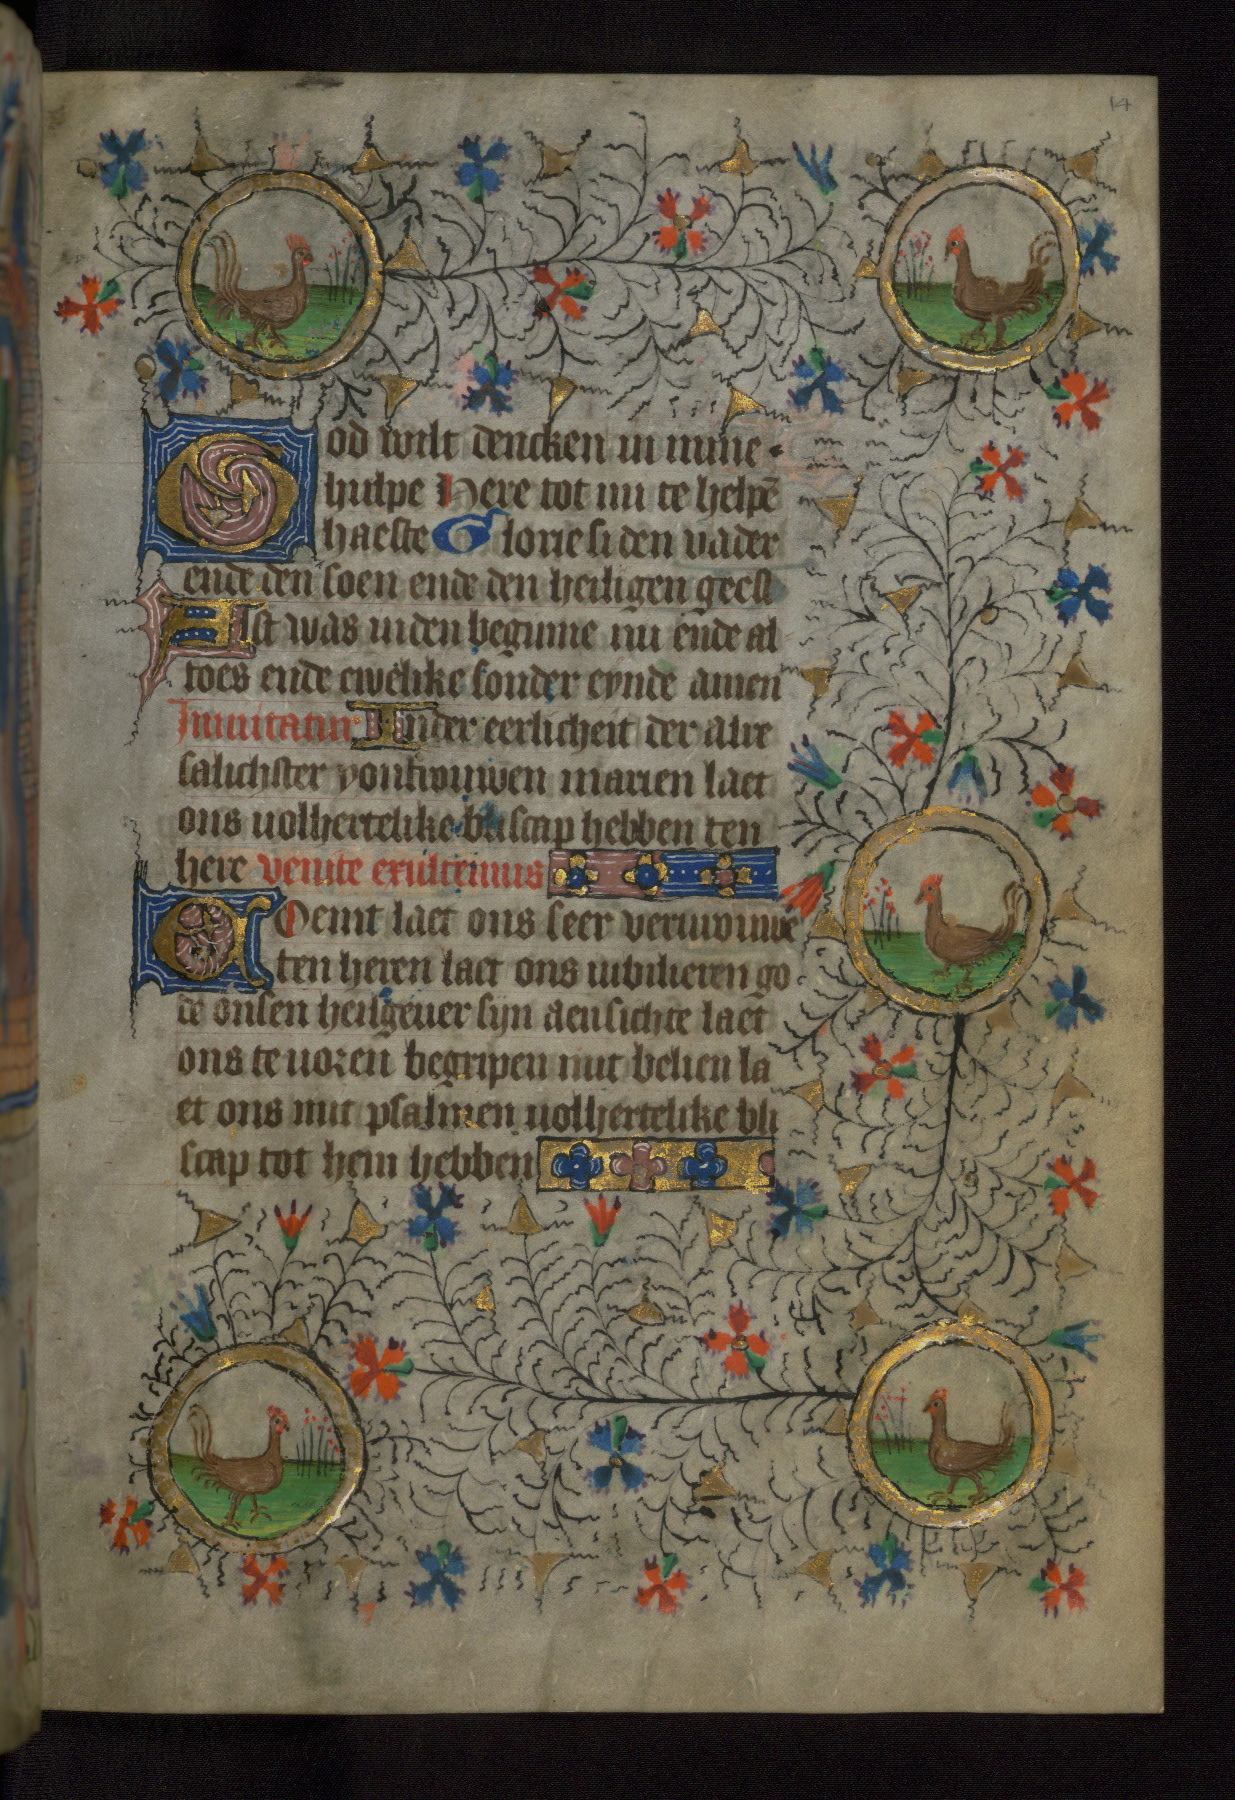 14
God wilt dencken in mine
hulpe Here tot mi te helpẽ
haeste Glorie si den vader
ende den soen ende den heiligen geest
Alst was inden beginne nu ende al
toes ende ewelike sonder eynde amen
Inuitatiu Inder eerlicheit der alre
salichster ionfrouwen marien laet
ons uolhertelike bliscap hebben ten
here venite exultemus
Coemt laet ons seer vervrouwẽ
ten heren laet ons iubilieren go
de onsen heilgeuer sijn aensichte laet
ons te uoren begripen mit belien la
et ons mit psalmen uolhertelike bli
scap tot hem hebben